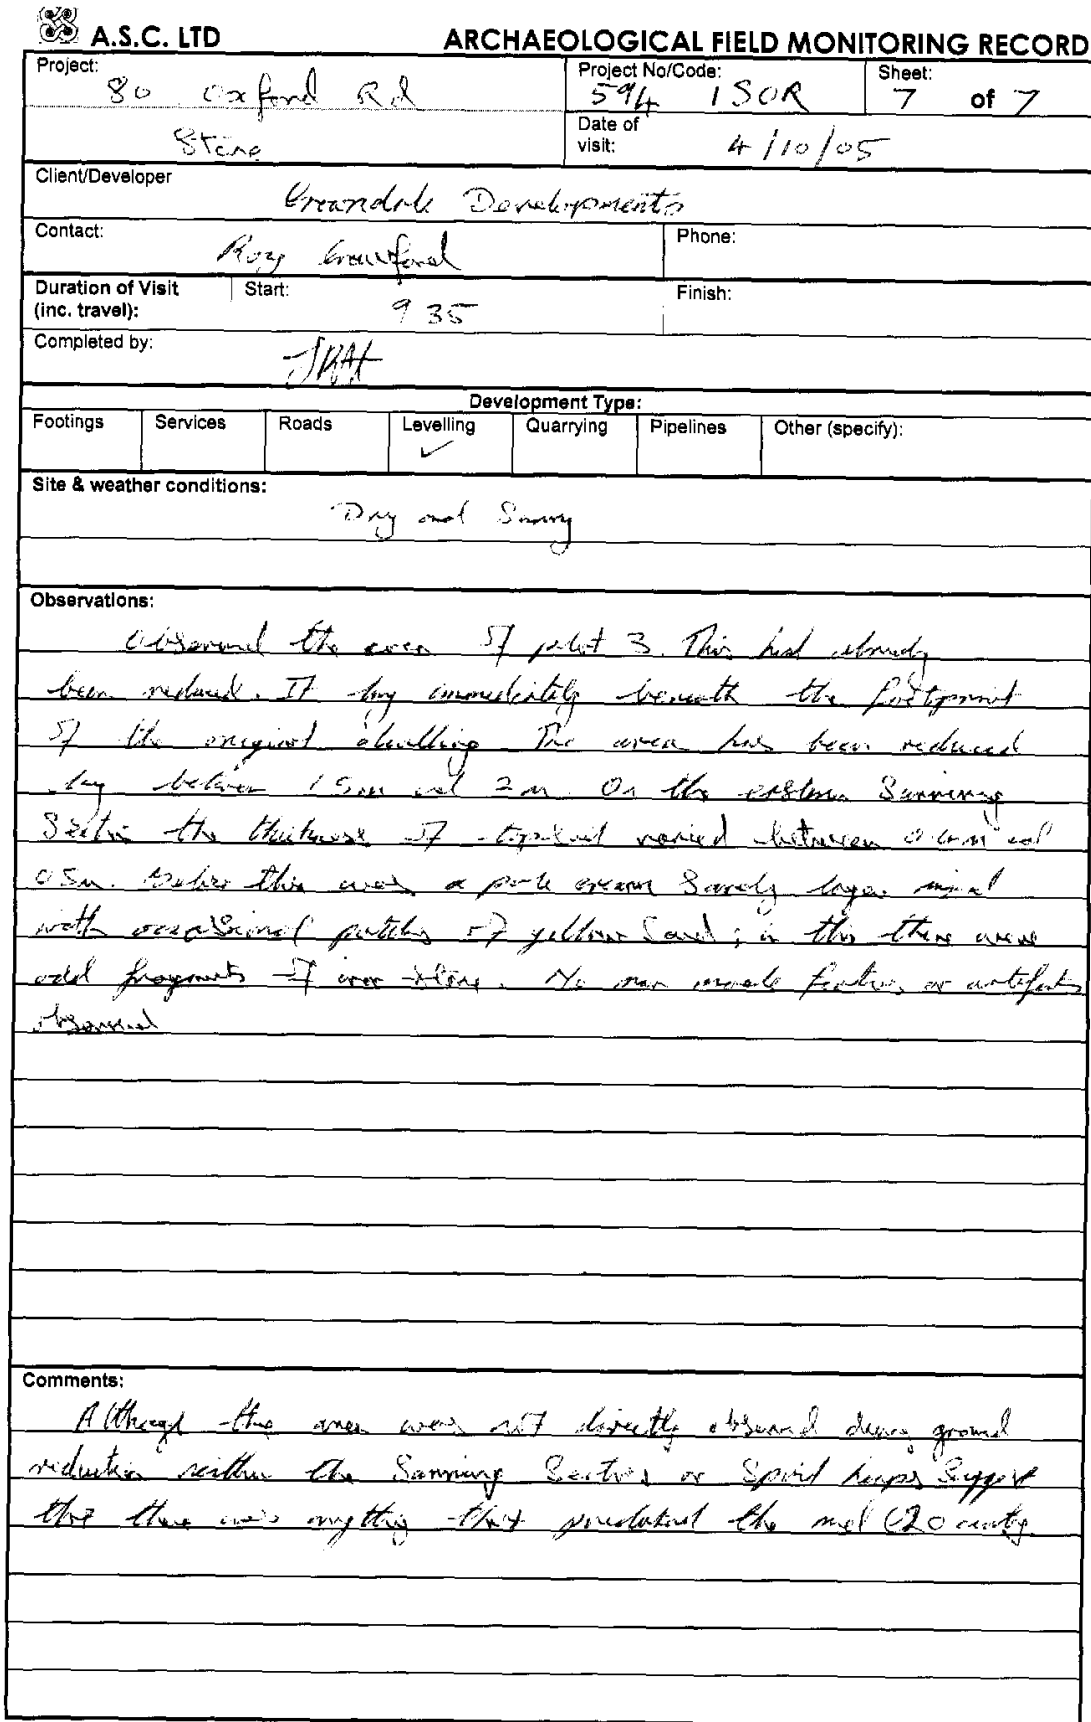 A.S.C. LTD ARCHAEOLOGICAL FIELD MONITORING RECORD
Project: 80 Oxford Rd
Stone
Project No/Code: 594 ISOR
Sheet: 7 of 7
Date of visit: 4/10/05
Client/Developer Developments
Contact: Roy Crawford
Phone:
Duration of Visit (inc. travel):
Start: 9 35
Finish:
Completed by:
Development Type:
Footings Services Roads Levelling ✓ Quarrying Pipelines Other (specify):
Site & weather conditions:
Dry and Sunny
Observations:
Observed the area of plot 3. This had already
been reduced. It lay immediately beneath the footprint
of the original dwelling The area has been reduced
by between 1 5m and 2m. On the eastern
Section the thickness of topsoil varied between 0.4m and
0 5m. Below this was a pale cream Sandy layer mixed
with occassional patches of yellow Sand; in this there were
odd fragments of iron stone. No man made features or artefacts
observed
Comments:
Although the area was not directly observed during ground
reduction neither the Sections or Spoil heaps Support
that there was anything that predated the mid C20 century.